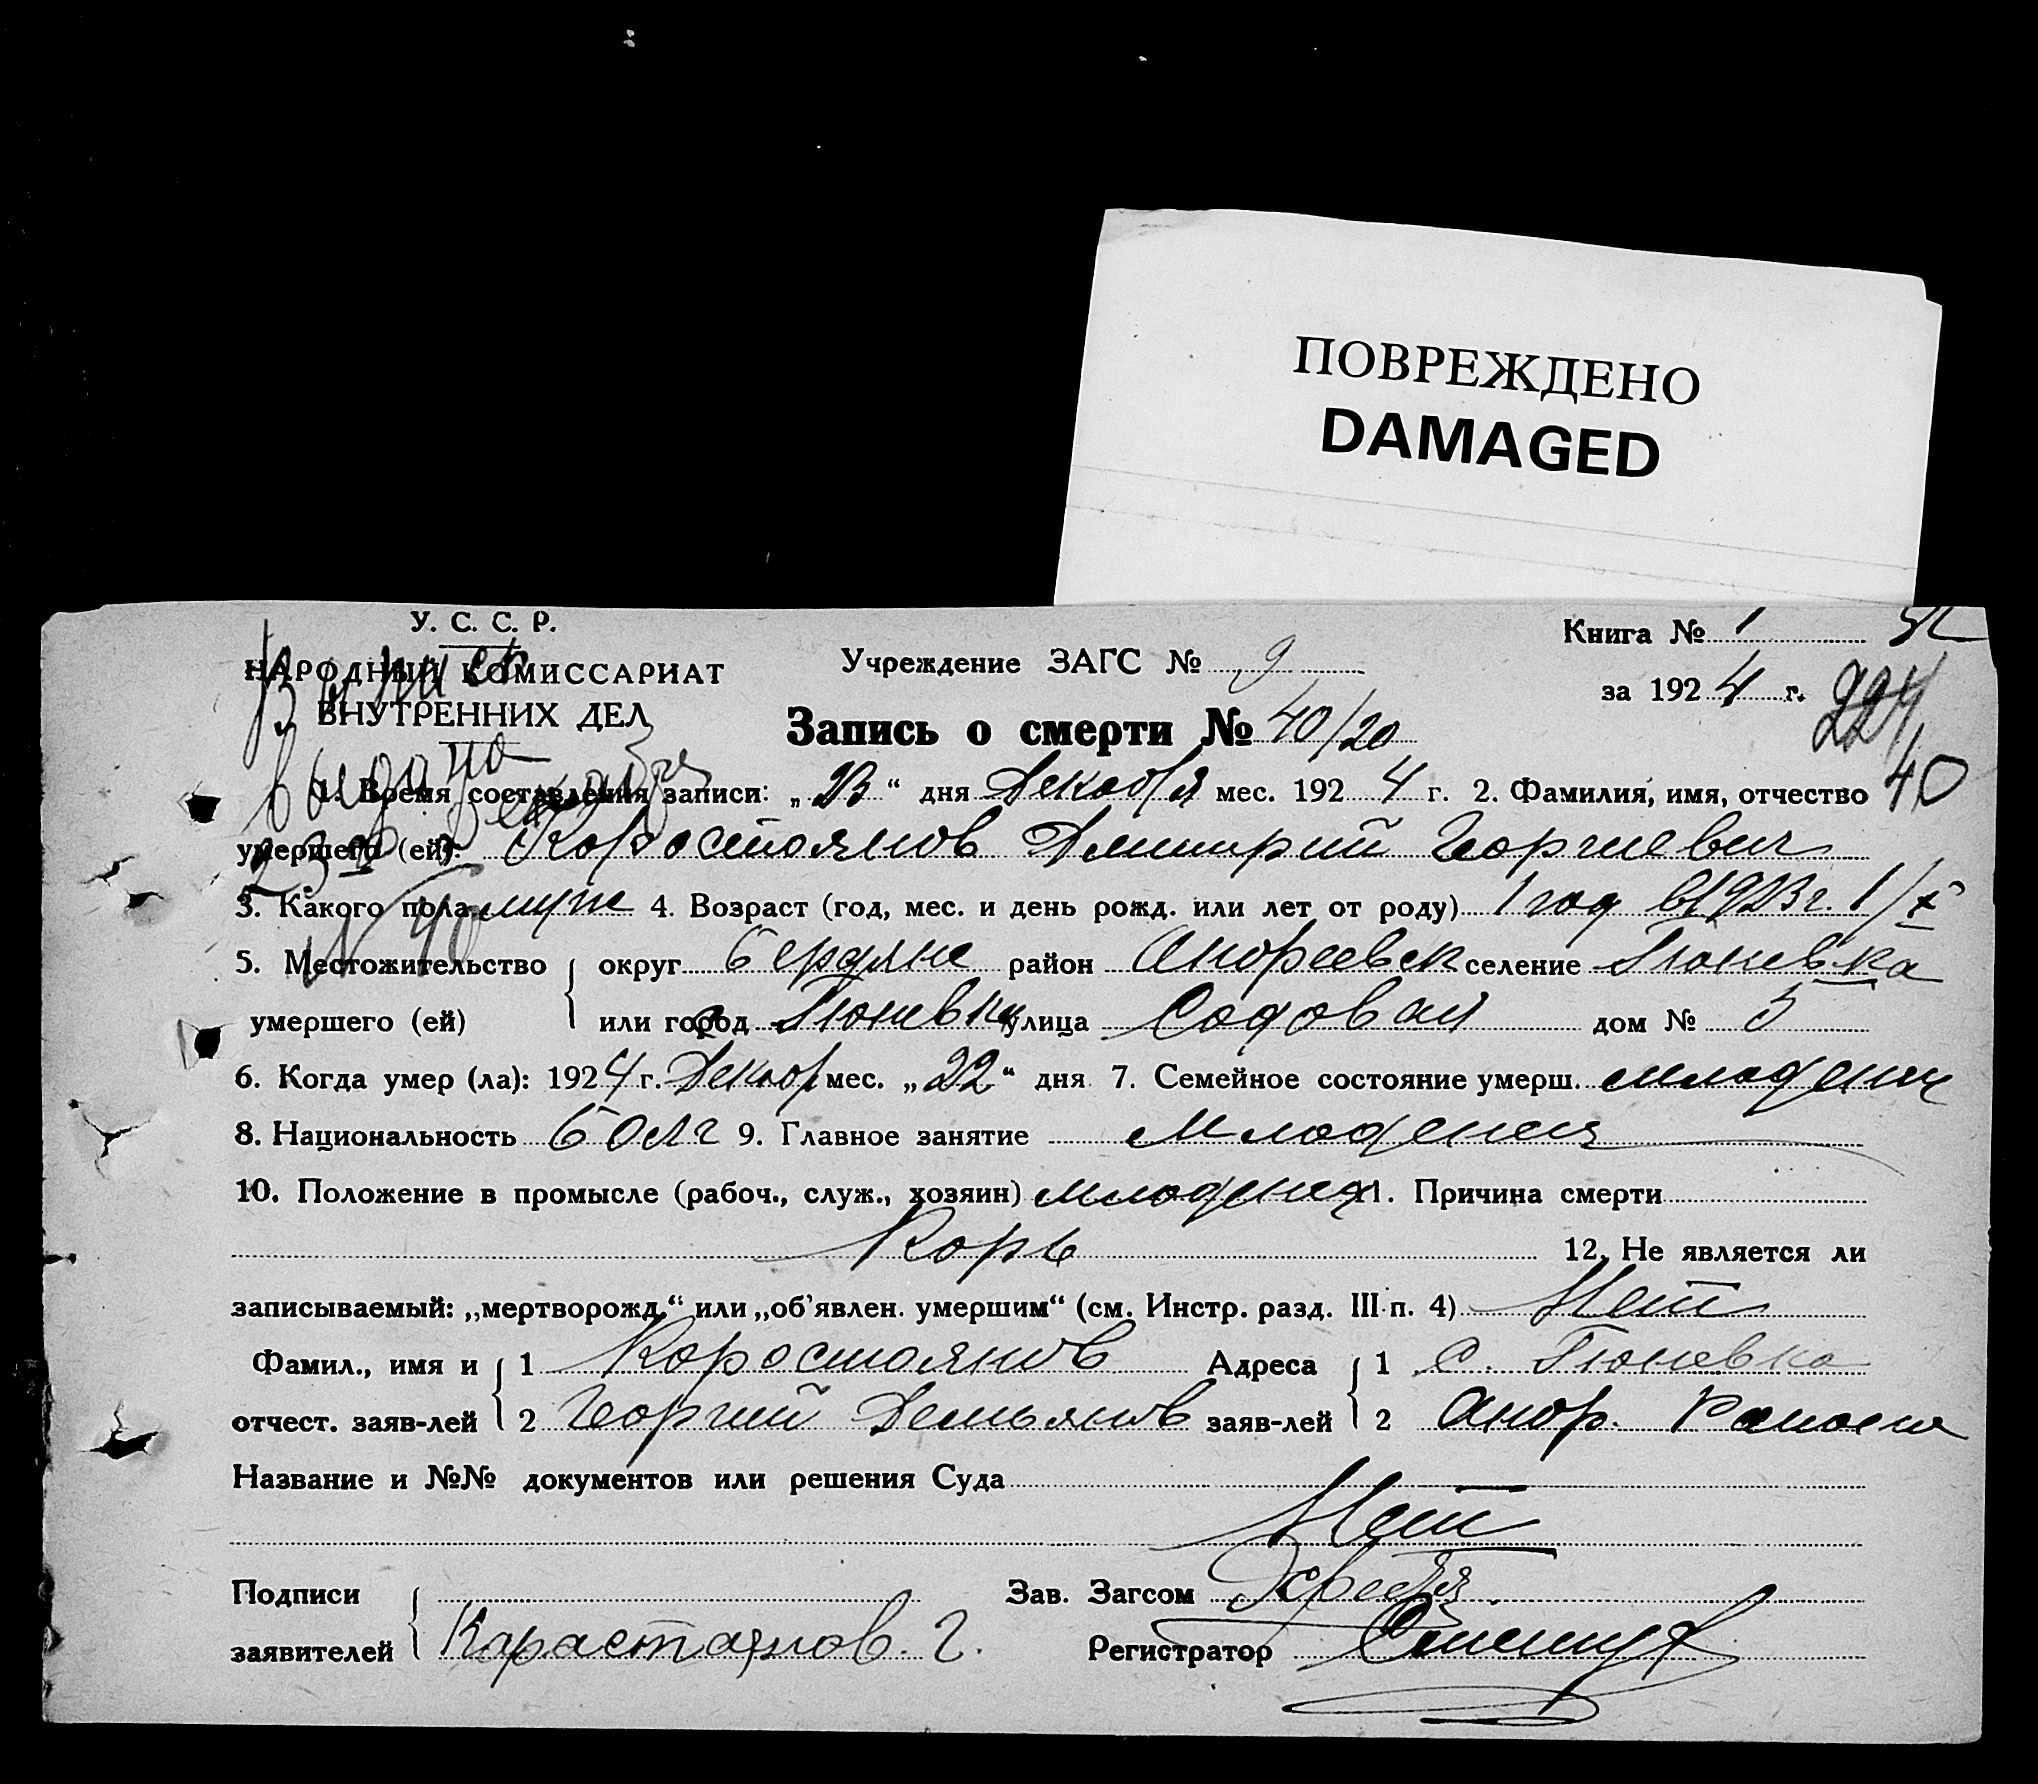 ПОВРЕЖДЕНО
DAMAGED
У. С. С. Р.
НАРОДНЫЙ КОМИССАРИАТ
ВНУТРЕННИХ ДЕЛ
Выпись
выдана
23 декабря
№ 40
Учреждение ЗАГС № 9
Книга № 1
за 1924 г.
224
40
Запись о смерти № 40/20
1. Время составления записи: „23“ дня Декабря мес. 1924 г. 2. Фамилия, имя, отчество
умершего (ей): Коростоянов Дмитрий Георгиевич
3. Какого пола муж 4. Возраст (год, мес. и день рожд. или лет от роду) 1 год 1923 г. 1/X
5. Местожительство { округ Бердянс район Андреевск селение Гюневка
умершего (ей) или город Гюневка улица Садовая дом № 5
6. Когда умер (ла): 1924 г. Декабр мес. „22“ дня 7. Семейное состояние умерш. младенец
8. Национальность болг 9. Главное занятие Младенец
10. Положение в промысле (рабоч., служ., хозяин) младенец 11. Причина смерти
Корь 12. Не является ли
записываемый: „мертворожд.“ или „об'явлен. умершим“ (см. Инстр. разд. III п. 4) Нет
Фамил., имя и { 1 Коростоянов Адреса { 1 с. Гюневка
отчест. заяв-лей 2 Георгий Демьянов заяв-лей 2 Андр. Района
Название и №№ документов или решения Суда
Нет
Подписи { Зав. Загсом
заявителей Карастоянов. Г. Регистратор